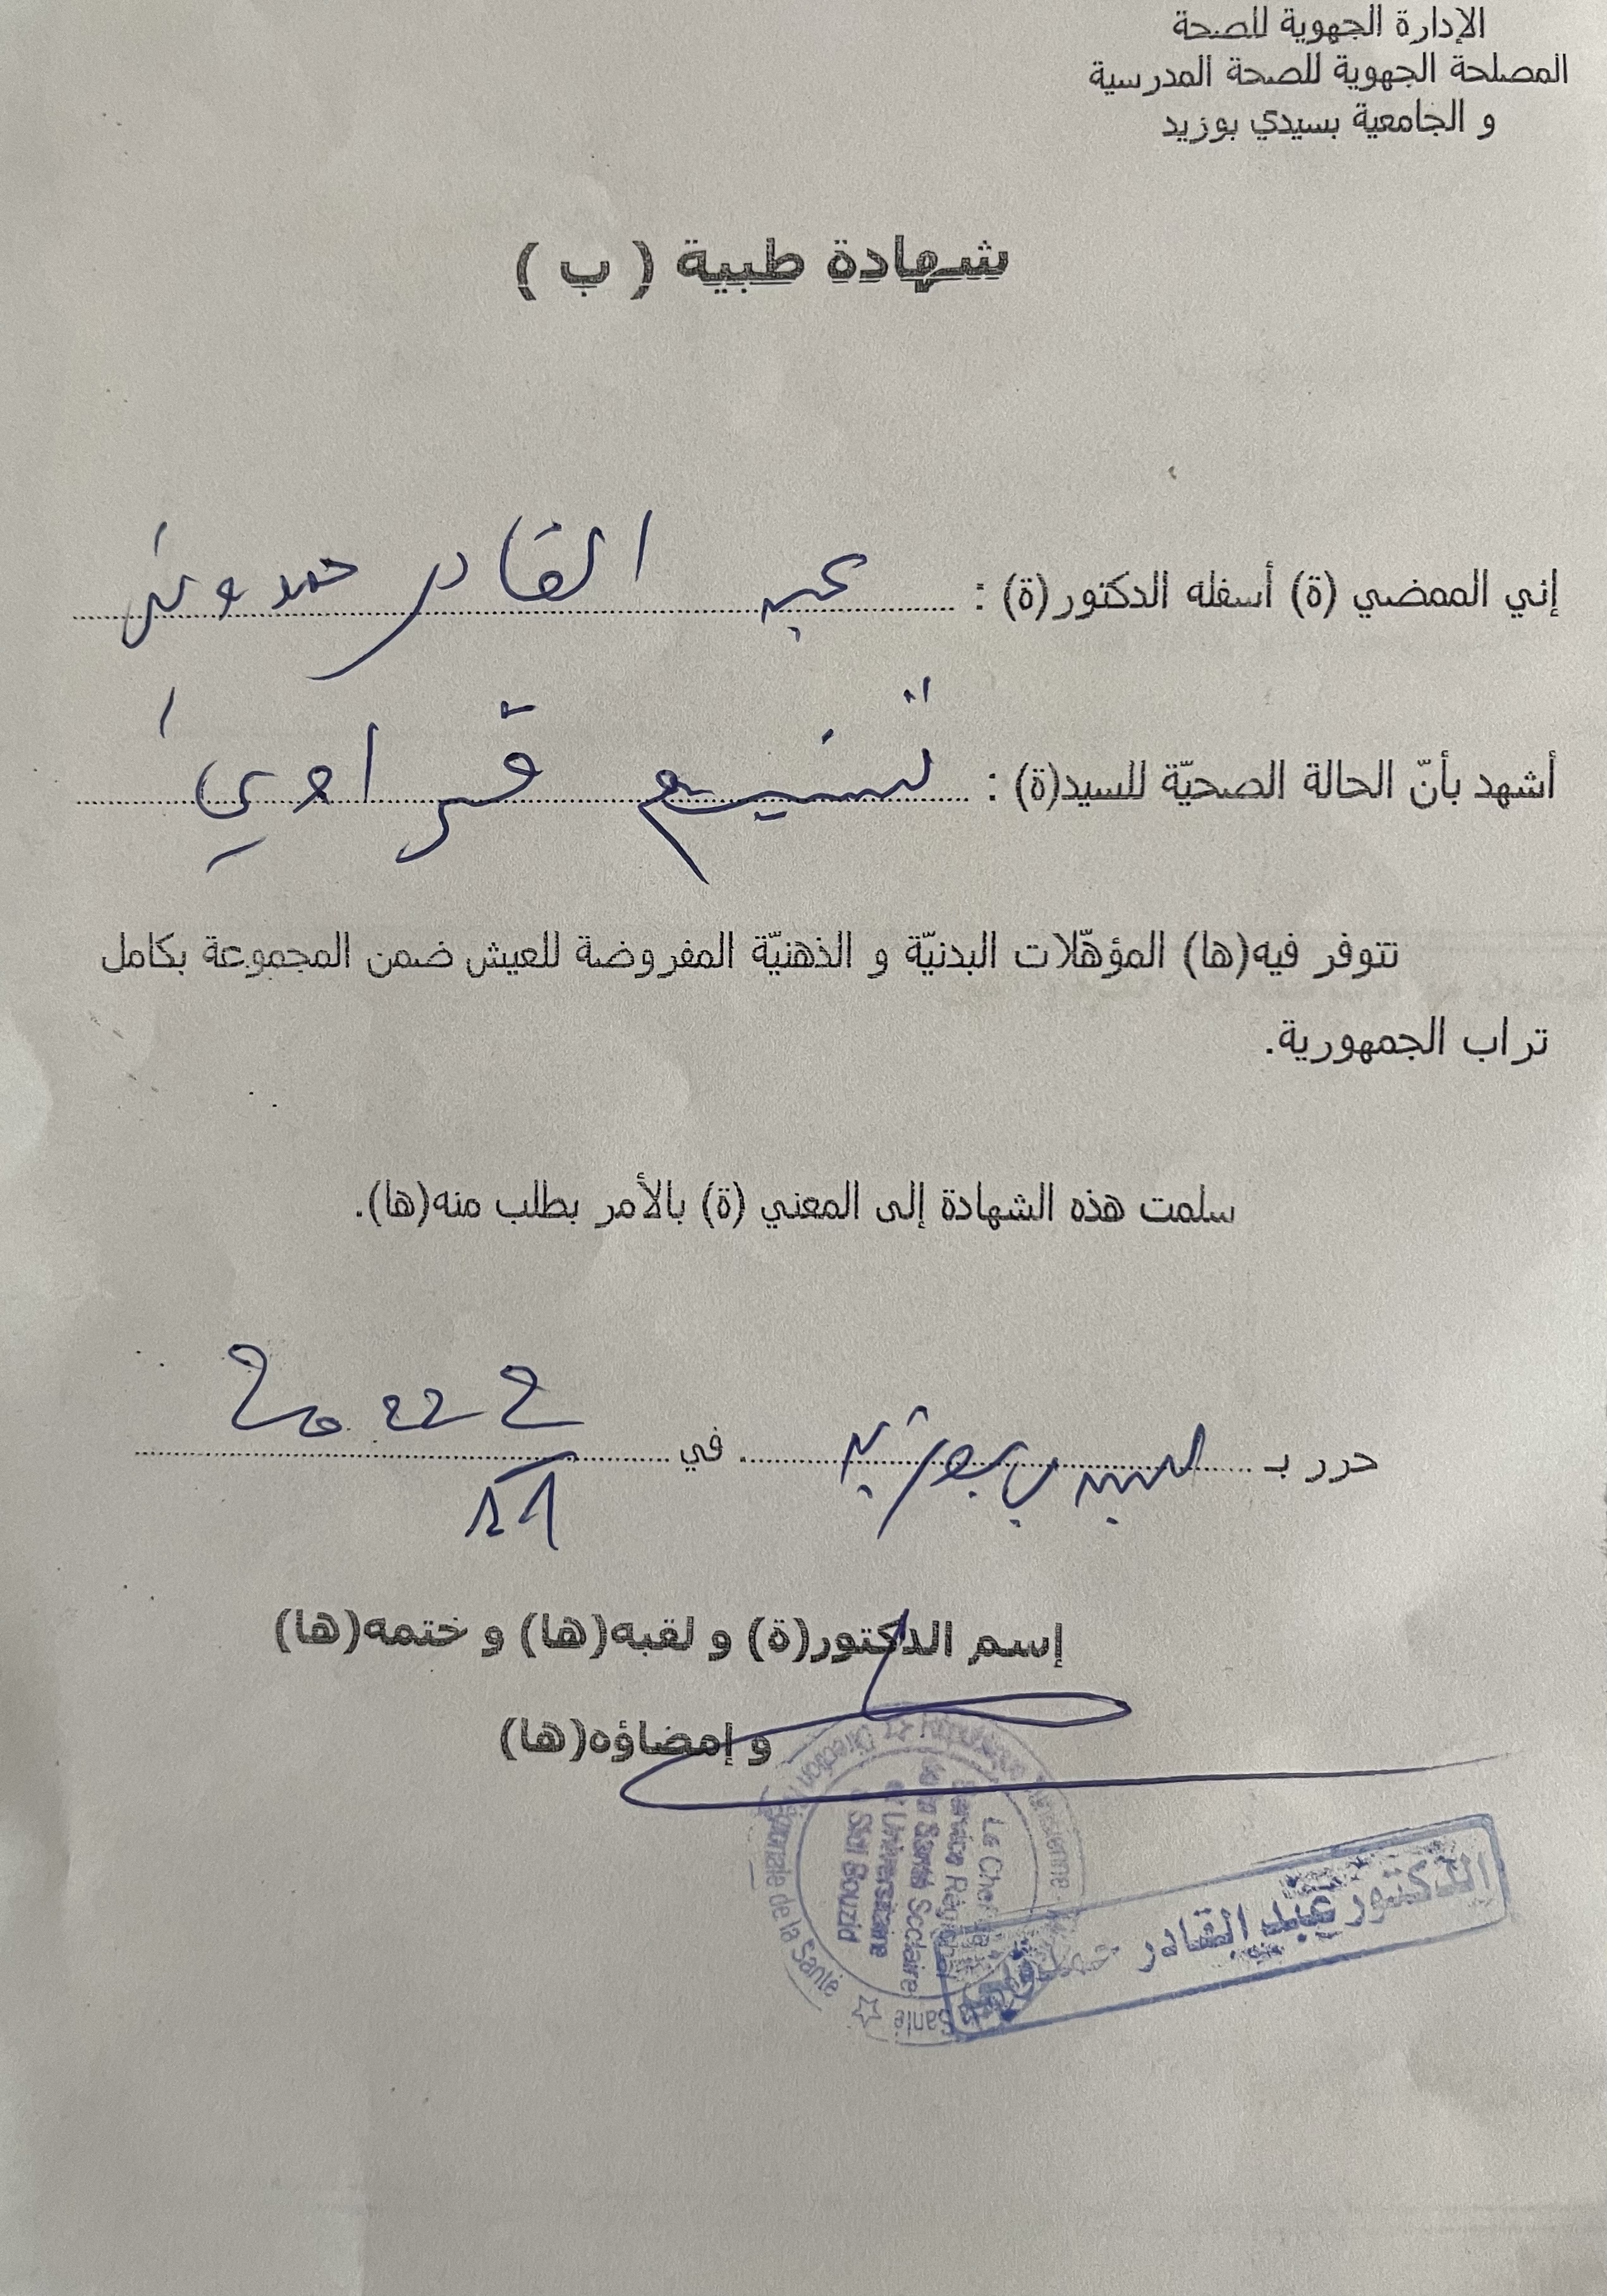 الإدارة الجهوية للصحة
المصلحة الجهوية للصحة المدرسية
و الجامعية بسيدي بوزيد
شهادة طبية ( ب )
إني الممضي (ة) أسفله الدكتور(ة) : عبد القادر حمدوني
أشهد بأنّ الحالة الصحيّة للسيد(ة) : تسنيم قراوي
تتوفر فيه(ها) المؤهّلات البدنيّة و الذهنيّة المفروضة للعيش ضمن المجموعة بكامل
تراب الجمهورية.
سلمت هذه الشهادة إلى المعني (ة) بالأمر بطلب منه(ها).
حرر بـ سيدي بوزيد في
إسم الدكتور(ة) و لقبه(ها) و ختمه(ها)
و إمضاؤه(ها)
Direction Régionale de la Santé
Service Régional
Santé Scolaire
Universitaire
Sidi Bouzid
الدكتور عبد القادر حمدوني